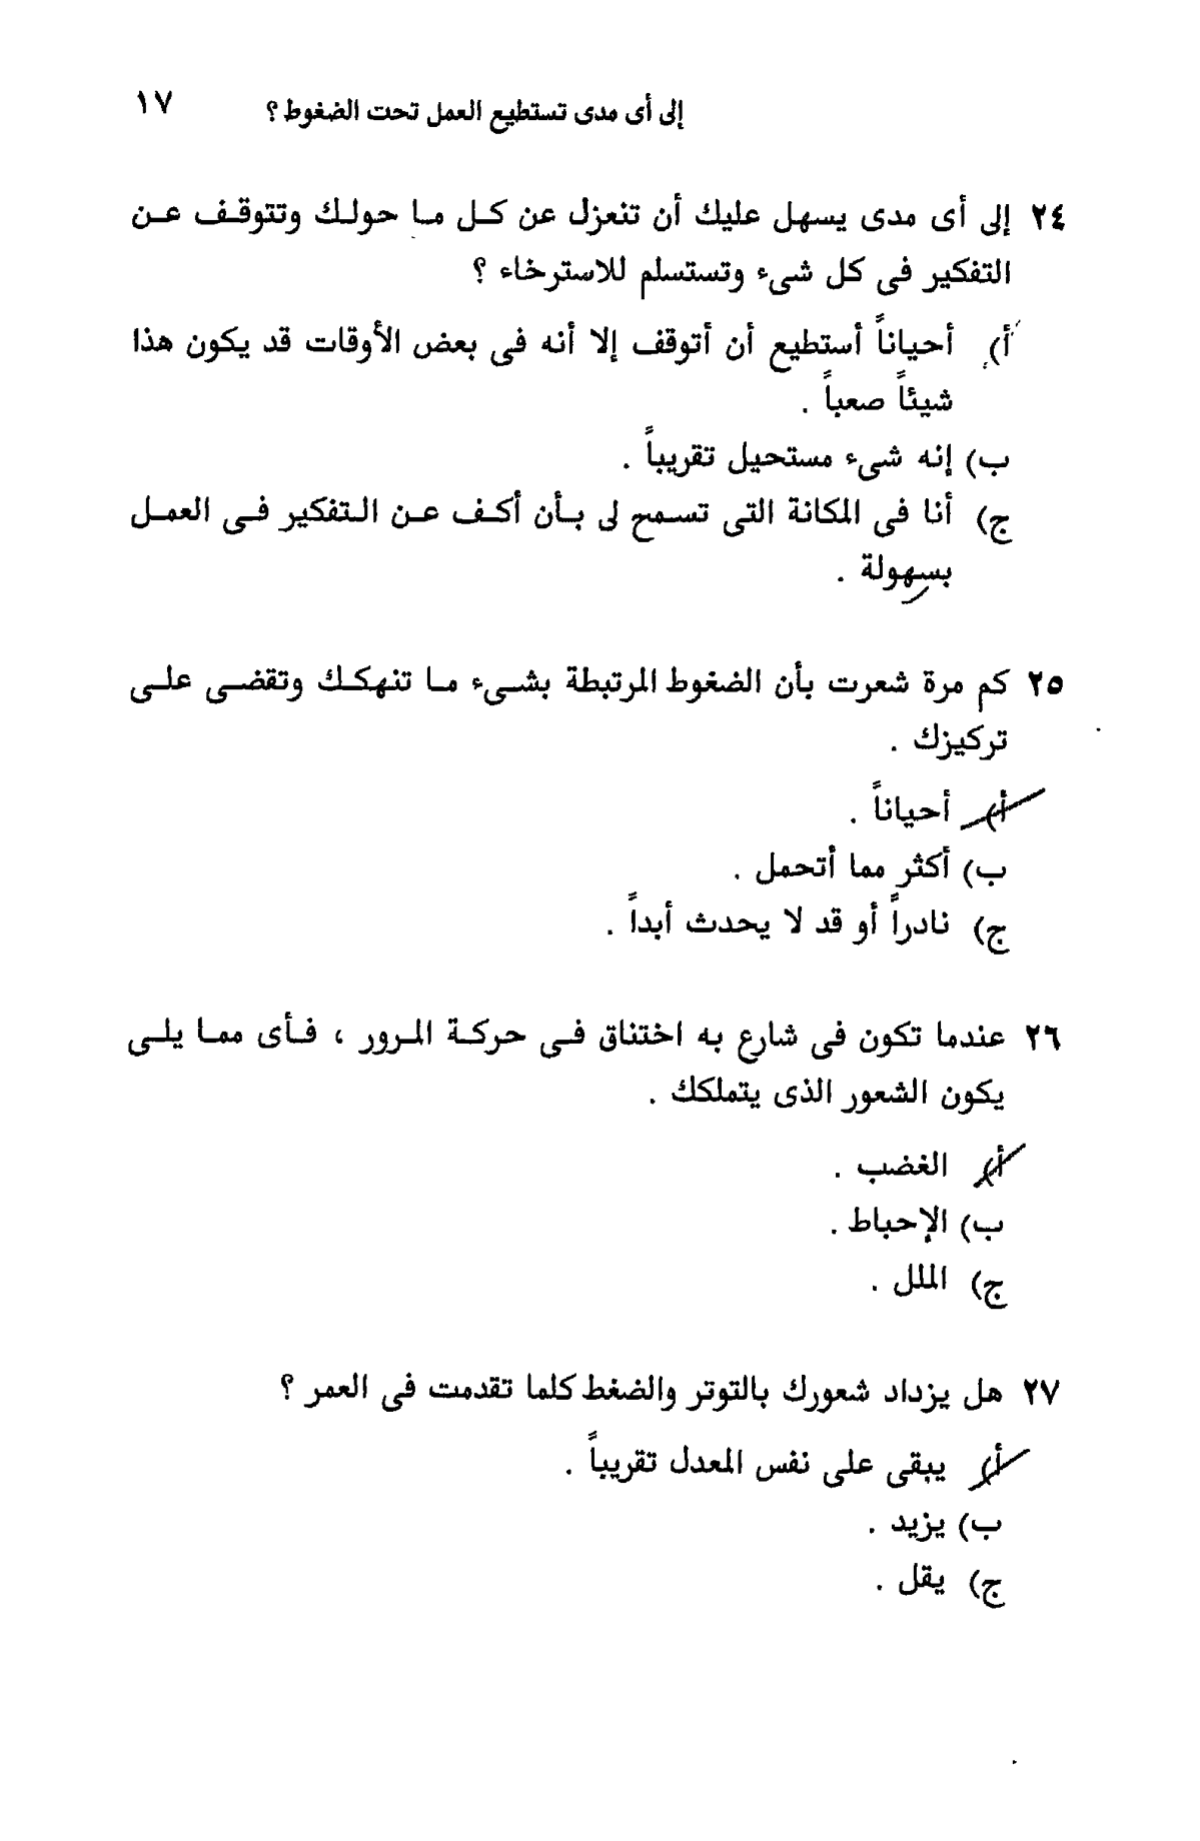 إلى أى مدى تستطيع العمل تحت الضغوط ؟ ١٧
٢٤ إلى أى مدى يسهل عليك أن تنعزل عن كل ما حولك وتتوقف عن
التفكير فى كل شىء وتستسلم للاسترخاء ؟
أ) أحياناً أستطيع أن أتوقف إلا أنه فى بعض الأوقات قد يكون هذا
شيئاً صعباً .
ب) إنه شىء مستحيل تقريباً .
ج) أنا فى المكانة التى تسمح لى بأن أكف عن التفكير فى العمل
بسهولة .
٢٥ كم مرة شعرت بأن الضغوط المرتبطة بشىء ما تنهكك وتقضى على
تركيزك .
أ) أحياناً .
ب) أكثر مما أتحمل .
ج) نادراً أو قد لا يحدث أبداً .
٢٦ عندما تكون فى شارع به اختناق فى حركة المرور ، فأى مما يلى
يكون الشعور الذى يتملكك .
أ) الغضب .
ب) الإحباط .
ج) الملل .
٢٧ هل يزداد شعورك بالتوتر والضغط كلما تقدمت فى العمر ؟
أ) يبقى على نفس المعدل تقريباً .
ب) يزيد .
ج) يقل .